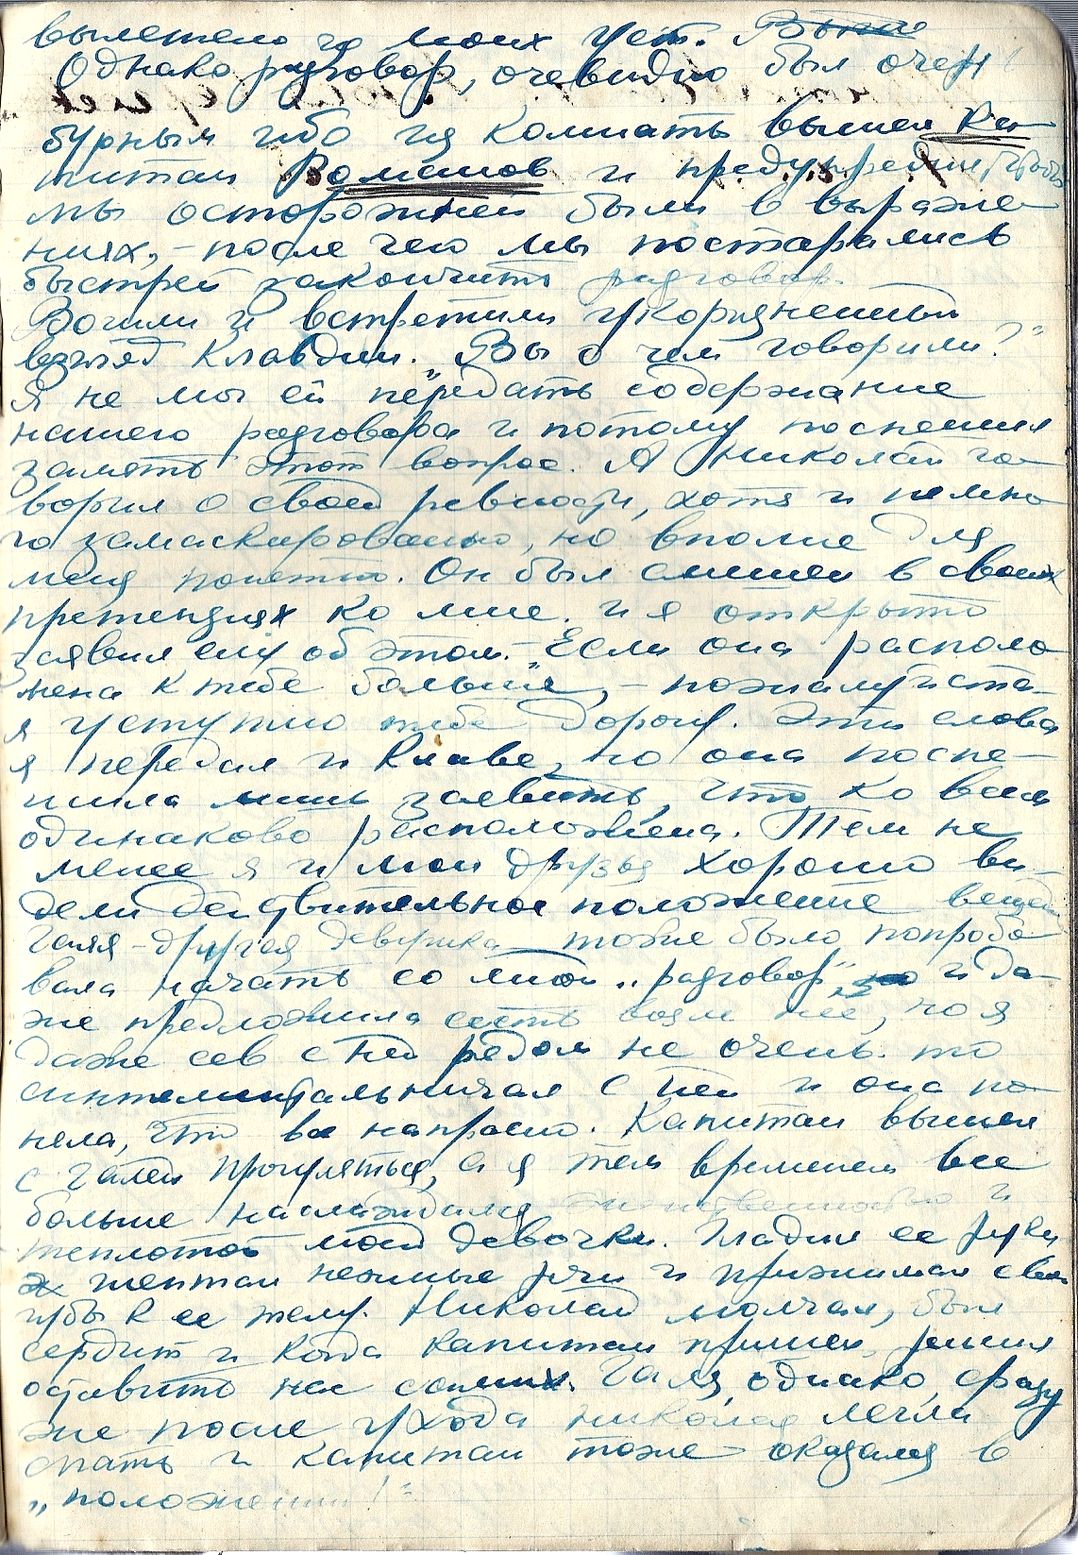 вылетело из моих уст. Вы не
Однако разговор, очевидно был очень
бурным ибо из комнаты вышел Ка-
питан Романов и предупредил, чтобы
мы осторожней были в выраже-
ниях, – после чего мы постарались
быстрей закончить разговор.
Вошли и встретили укоризненный
взгляд Клавдии. „Вы о чем говорили?"
Я не мог ей передать содержание
нашего разговора и потому поспешил
замять этот вопрос. А Николай го-
ворил о своей ревности, хотя и немно-
го замаскировано, но вполне для
меня понятно. Он был смешон в своих
претензиях ко мне и я открыто
заявил ему об этом. – Если она располо
жена к тебе больше, – пожалуйста –
я уступлю тебе дорогу. Эти слова
я передал и Клаве, но она поспе-
шила лишь заявить, что ко всем
одинаково расположена. Тем не
менее я и мои друзья хорошо ви-
дели действительное положение вещей
Галя – другая девушка тоже было попробо
вала начать со мной „разговор", и да-
же предложила сесть возле нее, но я
даже сев с ней рядом не очень то
сентиментальничал с ней и она по-
няла, что все напрасно. Капитан вышел
с Галей прогуляться, а я тем временем все
больше наслаждался женственностью и
теплотой моей девочки. Гладил ее руки
шептал нежные речи и прижимал свои
губы к ее телу. Николай молчал, был
сердит и когда капитан пришел, решил
оставить нас самих. Галя, однако, сразу
же после ухода Николая легла
спать и капитан тоже оказался в
„положении!"